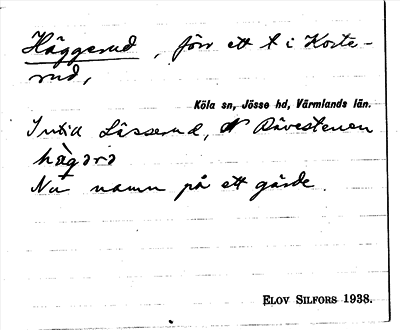 Häggerud, förr ett t i Korte-
rud,
Köla sn, Jösse hd, Värmlands län.
Intill Lässerud, N Rävestenen
hàgərə
Nu namn på ett gärde.
ELOV SILFORS 1938.